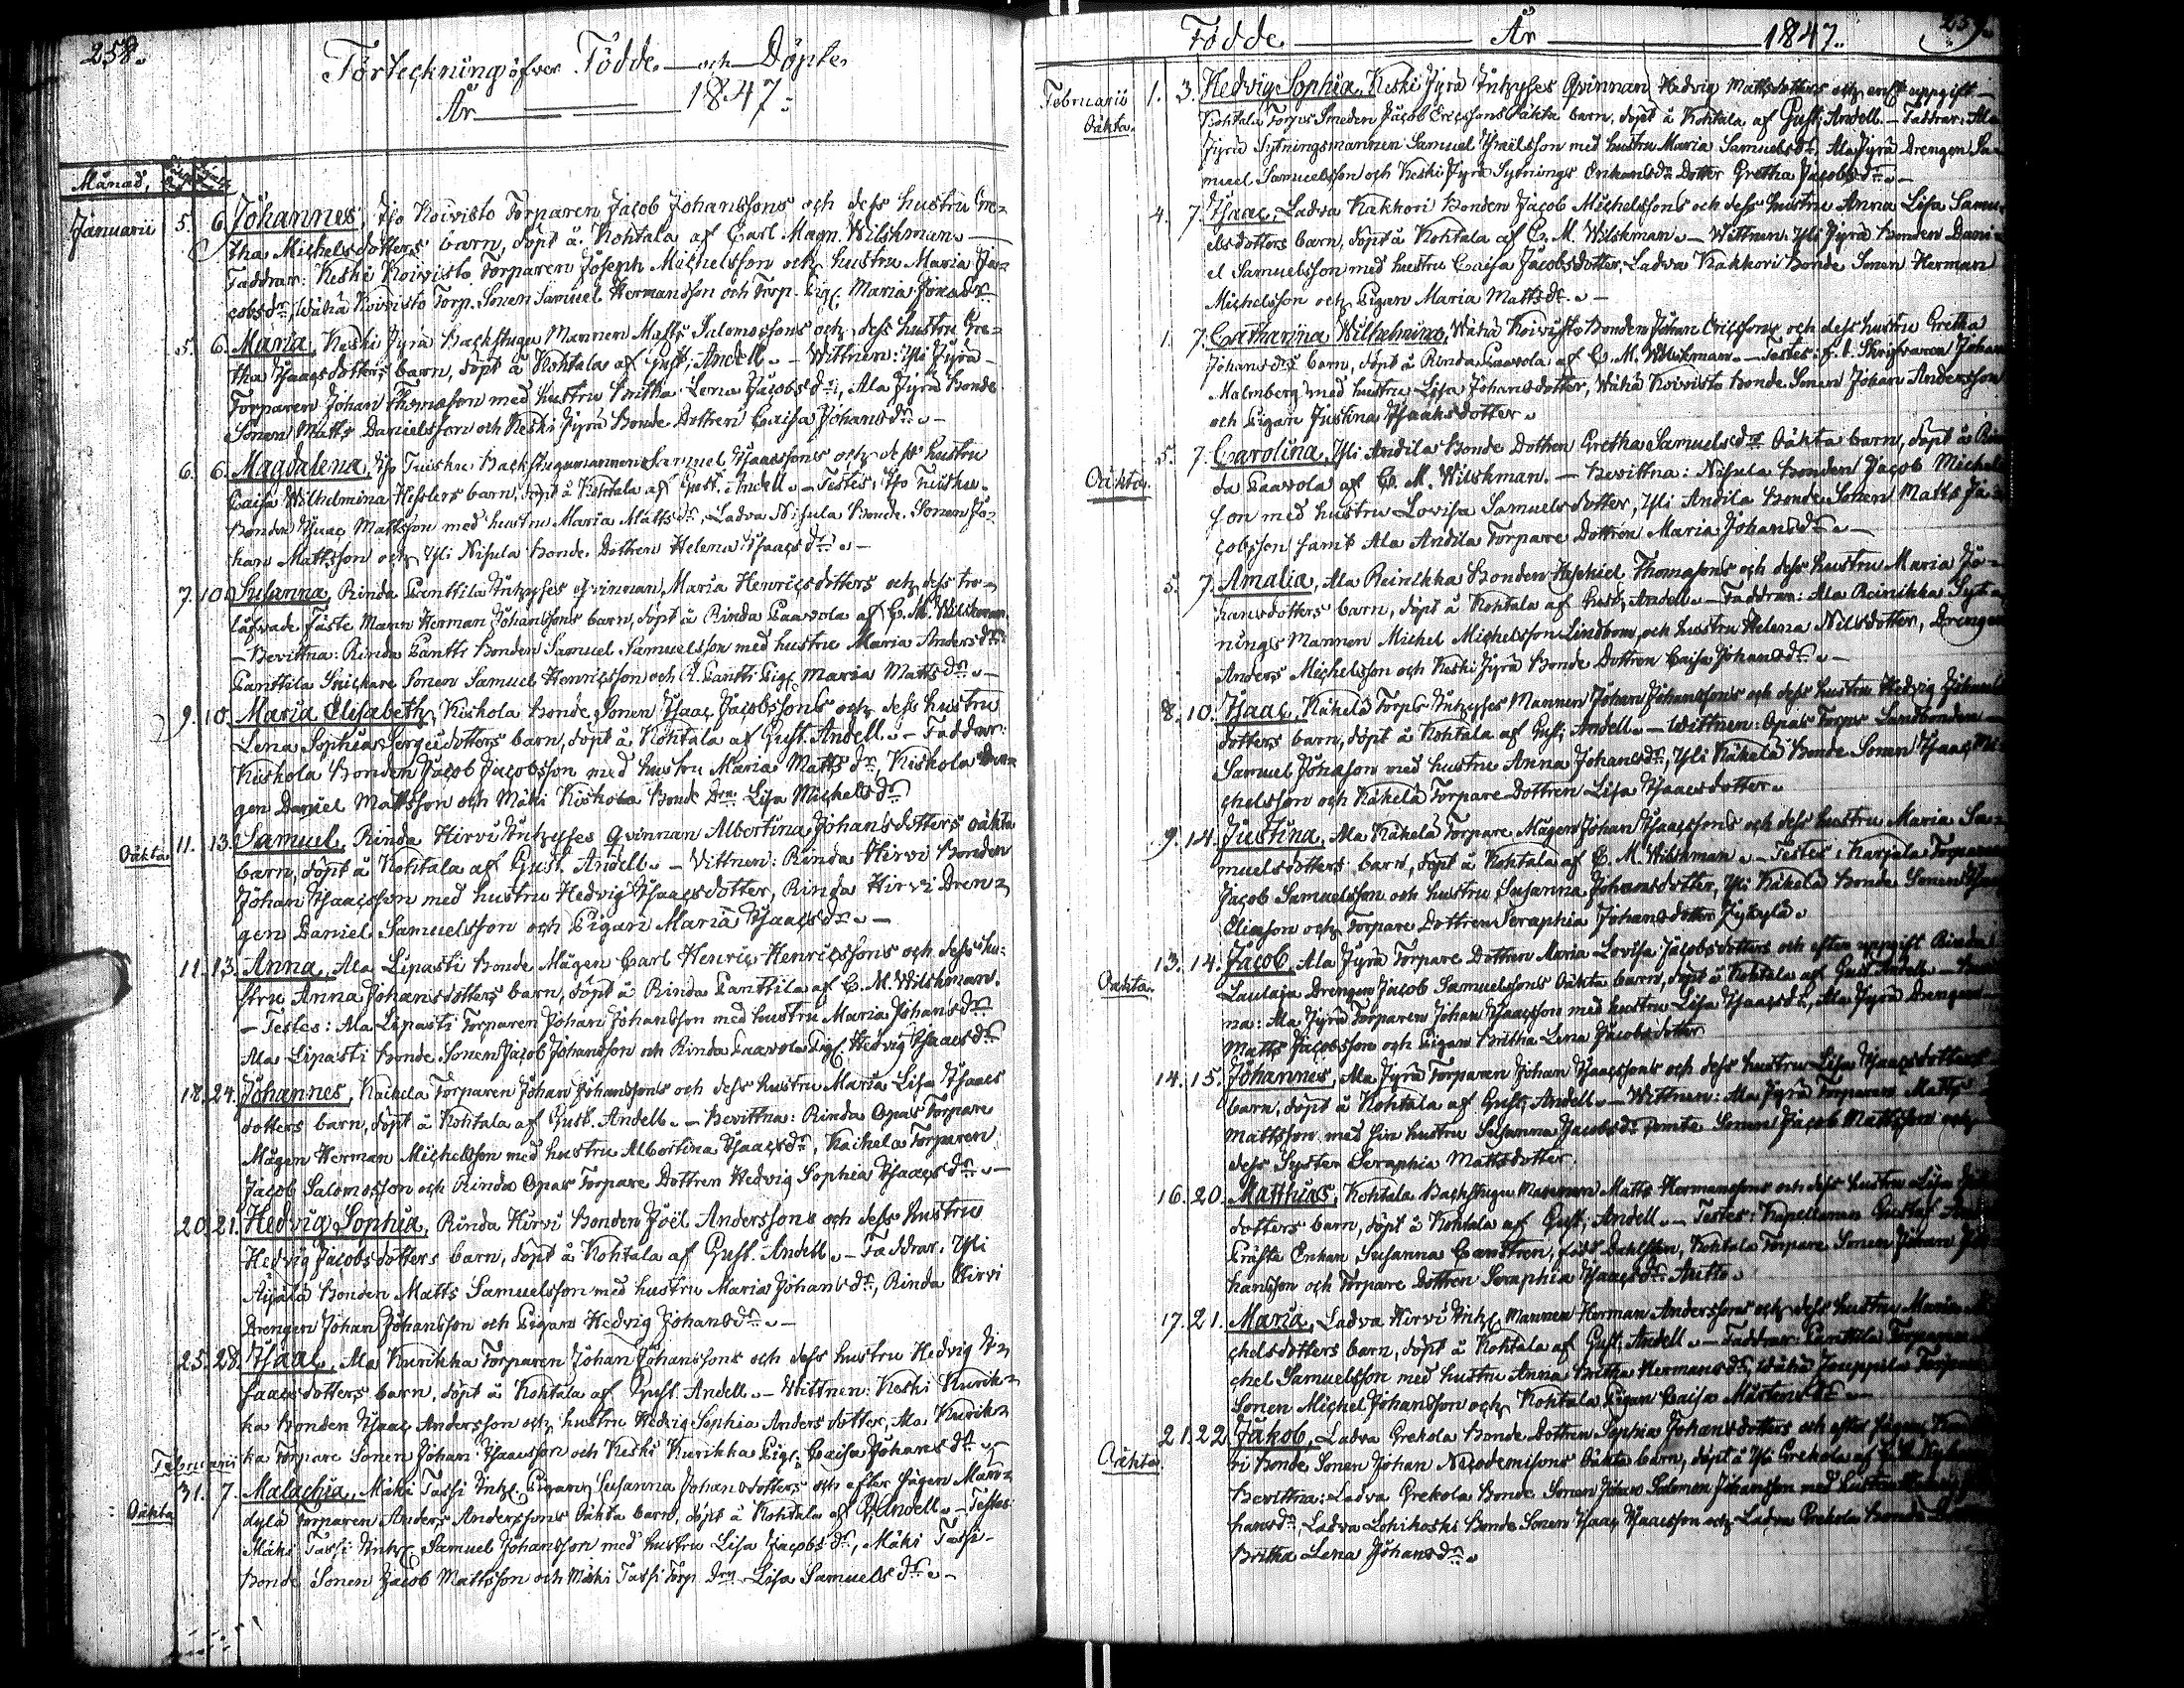 258.
Förteckning öfver Födde och Döpte
År 1847.
Månad,
Januarii 5. 6. Johannes, Iso Koivisto Torparen Jacob Johanssons och dess hustru Gre-
tha Michelsdotters barn, döpt å Kohtala af Carl Magn. Wilskman. —
Faddrar: Keski Koivisto Torparen Joseph Michelsson och hustru Maria Ja-
cobsdr, Wähä Koivisto Torp. Sonen Samuel Hermansson och Torp. Pig. Maria Jonaedr
5. 6. Maria, Keski Jyrä Backstugu Mannen Matts Salomossons och dess hustru Gre-
tha Isaacsdotters barn, döpt å Kohtala af Gust. Andell. — Wittnen: Yli Jyrä
Torparen Johan Thomasson med hustru Britha Lena Jacobsdr, Ala Jyrä Bonde
Sonen Matts Danielsson och Keski Jyrä Bonde Dottren Caisa Johansdr. —
6. 6. Magdalena, Iso Tuisku Backstugumannen Samuel Isaacssons och dess hustru
Caisa Wilhelmina Hesslers barn, döpt å Kohtala af Gust. Andell. — Testes: Iso Tuisku
Bonden Isaac Mattsson med hustru Maria Mattsdr, Ladva Nisula Bonde Sonen Jo-
han Mattsson och Yli Nisula Bonde Dottren Helena Isaacsdr. —
7. 10. Susanna, Rinda Panttila Inhyses qvinnan Maria Henricsdotters och dess tro-
lofvade Fäste Mann Herman Johanssons barn, döpt å Rinda Paavola af C. M. Wilskman.
— Bevittna: Rinda Pantti Bonden Samuel Samuelsson med hustru Maria Andersdr
Panttila Snickare Sonen Samuel Henricsson och R. Pantti Pig. Maria Mattsdr. —
9. 10. Maria Elisabeth, Kiskola Bonde Sonen Isaac Jacobssons och dess hustru
Lena Sophia Sergeidotters barn, döpt å Kohtala af Gust. Andell. — Faddrar:
Kiskola Bonden Jacob Jacobsson med hustru Maria Mattsdr, Kiskola Dren-
gen Daniel Mattsson och Mäki Kiskola Bonde Drn Lisa Michelsdr
Oäkta 11. 13. Samuel, Rinda Hirvi Inhyses qvinnan Albertina Johansdotters oäkta
barn, döpt å Kohtala af Gust. Andell. — Vittnen: Rinda Hirvi Bonden
Johan Isaacsson med hustru Hedvig Isaacsdotter, Rinda Hirvi Dren-
gen Daniel Samuelsson och Pigan Maria Isaacsdr. —
11. 13. Anna, Ala Lipasti Bonde Mågen Carl Henric Henricssons och dess hu-
stru Anna Johansdotters barn, döpt å Rinda Panttila af C. M. Wilskman.
— Testes: Ala Lipasti Torparen Johan Johansson med hustru Maria Johansdr
Ala Lipasti Bonde Sonen Jacob Johansson och Rinda Paavola Pig. Hedvig Isaacsdr
18. 24. Johannes, Kackela Torparen Johan Johanssons och dess hustru Maria Lisa Isaacs
dotters barn, döpt å Kohtala af Gust. Andell. — Bevittna: Rinda Opas Torpare
Mågen Herman Michelsson med hustru Albertina Isaacsdr, Kaikela Torparen
Jacob Salomosson och Rinda Opas Torpare Dottren Hedvig Sophia Isaacsdr. —
20. 21. Hedvig Sophia, Rinda Hirvi Bonden Joël Anderssons och dess hustru
Hedvig Jacobsdotters barn, döpt å Kohtala af Gust. Andell. — Faddrar: Yli
Äijälä Bonden Matts Samuelsson med hustru Maria Johansdr, Rinda Hirvi
Drengen Johan Johansson och Pigan Hedvig Johansdr. —
25. 28. Isaac, Ala Kurikka Torparen Johan Johanssons och dess hustru Hedvig I-
saacsdotters barn, döpt å Kohtala af Gust. Andell. — Wittnen: Keski Kurik-
ka Bonden Isaac Andersson och hustru Hedvig Sophia Andersdotter, Ala Kurik-
ka Torpare Sonen Johan Isaacsson och Keski Kurikka Pig. Caisa Johansdr. —
Februarii
Oäkta 31. 7. Malachia, Mäki Tassi Inh. Pigans Susanna Johansdotters och efter sägen Man-
dylä Torparen Anders Anderssons Oäkta barn, döpt å Kohtala af G. Andell. — Testes:
Mäki Tassi Inh. Samuel Johansson med hustru Lisa Jacobsdr, Mäki Tassi
Bonde Sonen Jacob Mattsson och Mäki Tassi Torp. Drn Lisa Samuelsdr. —
259.
Födde År 1847.
Februarii Oäkta 1. 3. Hedvig Sophia, Keski Jyrä Inhyses Qvinnan Hedvig Mattsdotters och enl. uppgift
Kohtala Torps Smeden Jacob Ericssons Oäkta barn, döpt å Kohtala af Gust. Andell. — Faddrar: Ala
Jyrä Sytningsmannen Samuel Isacsson med hustru Maria Samuelsdr, Ala Jyrä Drengen Sa-
muel Samuelsson och Keski Jyrä Sytnings Enkans Dotter Gretha Jacobsdr. —
4. 7. Isaac, Ladva Kakkori Bonden Jacob Michelssons och dess hustru Anna Lisa Samu-
elsdotters barn, döpt å Kohtala af C. M. Wilskman. — Wittnen: Yli Jyrä Bonden Dani-
el Samuelsson med hustru Caisa Jacobsdotter, Ladva Kakkori Bonde Sonen Herman
Michelsson och Pigan Maria Mattsdr. —
1. 7. Catharina Wilhelmina, Wähä Koivisto Bonden Johan Ericssons och dess hustru Gretha
Johansdrs barn, döpt å Rinda Paavola af C. M. Wilskman. — Testes: f. d. Skrifvaren Johan
Malmberg med hustru Lisa Johansdotter, Wähä Koivisto Bonde Sonen Johan Andersson
och Pigan Justina Isaaksdotter.
Oäkta. 5. 7. Carolina, Yli Andila Bonde Dottren Gretha Samuelsdrs Oäkta barn, döpt å Rin
da Paavola af C. M. Wilskman. — Bevittna: Nisula Bonden Jacob Michels
son med hustru Lovisa Samuelsdotter, Yli Andila Bonde Sonen Matts Ja-
cobsson samt Ala Andila Torpare Dottren Maria Johansdr. —
5. 7. Amalia, Ala Reinikka Bonden Heskiel Thomasons och dess hustru Maria Jo-
hansdotters barn, döpt å Kohtala af Gust. Andell. — Faddrar: Ala Reinikka Syt-
nings Mannen Michel Michelsson Lindbom och hustru Helena Nilsdotter, Drengen
Anders Michelsson och Keski Jyrä Bonde Dottren Caisa Johansdr. —
8. 10. Isaac, Käkelä Torps Inhyses Mannen Johan Johanssons och dess hustru Hedvig Johans
dotters barn, döpt å Kohtala af Gust. Andell. — Wittnen: Opas Torps Landbonden
Samuel Jonasson med hustru Anna Johansdr, Yli Käkelä Bonde Sonen Isaac Mi-
chelsson och Käkelä Torpare Dottren Lisa Isaacsdotter.
9. 14. Justina, Ala Käkelä Torpare Mågen Johan Isaacssons och dess hustru Maria Sa-
muelsdotters barn, döpt å Kohtala af C. M. Wilskman. — Testes: Karjala Torparen
Jacob Samuelsson och hustru Susanna Johansdotter, Yli Käkelä Bonde Sonen
Eliasson och Torpare Dottren Seraphia Johansdotter Jykylä.
Oäkta. 13. 14. Jacob, Ala Jyrä Torpare Dottren Maria Lovisa Jacobsdotters och efter uppgift Rinda
Laulaja Drengen Jacob Samuelssons Oäkta barn, döpt å Kohtala af Gust. Andell. —
na: Ala Jyrä Torparen Johan Isaacsson med hustru Lisa Isaacsdr, Ala Jyrä Drengen
Matts Jacobsson och Pigan Britha Lena Jacobsdotter
14. 15. Johannes, Ala Jyrä Torparen Johan Isaacssons och dess hustru Lisa Isaacsdotters
barn, döpt å Kohtala af Gust. Andell. — Wittnen: Ala Jyrä Torparen Matts
Mattsson med sin hustru Susanna Jacobsdr Sonen Jacob Mattsson och
dess Syster Seraphia Mattsdotter.
16. 20. Matthias, Kohtala Backstugu Mannen Matts Hermanssons och dess hustru Lisa
dotters barn, döpt å Kohtala af Gust. Andell. — Testes: Kapellanen Gustaf
Präste Enkan Susanna född Dahlsten, Kohtala Torpare Sonen Johan Jo
hansson och Torpare Dottren Seraphia Isaacsdr Autto.
17. 21. Maria, Ladva Hirvi Inh. Mannen Herman Anderssons och dess hustru Maria Mi
chelsdotters barn, döpt å Kohtala af Gust. Andell. — Faddrar: Panttila Torparen
chel Samuelsson med hustru Anna Britha Hermansdr, Wähä Jouppila Torpare
Sonen Michel Johansson och Kohtala Pigan Caisa Mårtensdr. —
Oäkta. 21. 22. Jakob, Ladva Grekola Bonde Dottren Sophia Johansdotters och efter sägen
ri Bonde Sonen Johan Nicodemisons Oäkta barn, döpt å Yli Grekola af
Bevittna: Ladva Grekola Bonde Sonen Johan Salomon Johansson med hustru
hansdr, Ladva Lohikoski Bonde Sonen Isaac Isaacsson och Ladva Grekola Bonde
Britha Lena Johansdr.